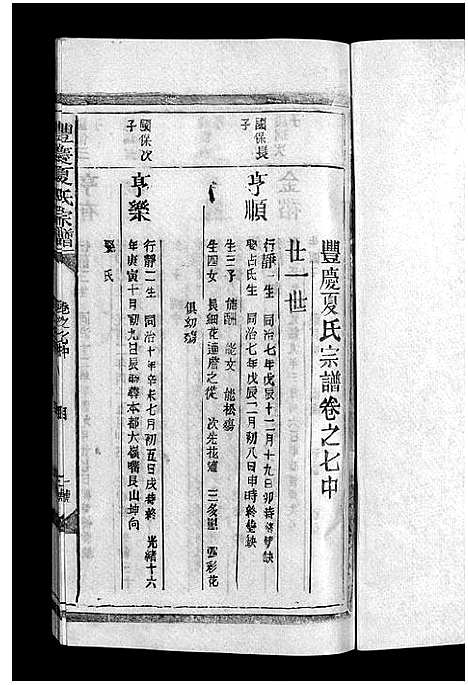 豐慶夏氏宗譜卷之七中
廿一世
國保長子
亨順
行靜一生 同治七年戊辰十二月十九日卯時
娶占氏生 同治七年戊辰二月初八日申時終
生三子 能酬 能文 能松殤
生四女 長細花適詹之從 次先花 三多 四彩花
俱幼殤
國保次子
亨樂
行靜二生 同治十年辛未七月初五日戌時終 光緒十六
年庚寅十月初九日辰時葬本都大嶺嘴艮山坤向
娶 氏
豐慶夏氏宗譜
卷之七中